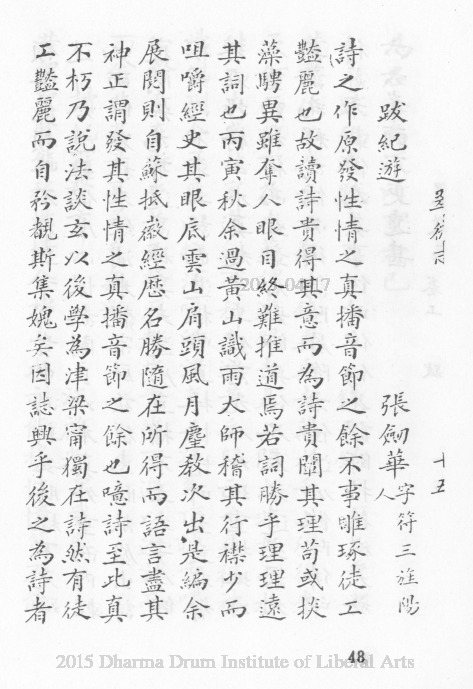 十五
跋紀遊 張劒華字符三旌陽人
詩之作原發性情之真播音節之餘不事雕琢徒工
豔麗也故讀詩貴得其意而為詩貴闡其理苟或掞
藻騁異雖奪人眼目終難推道焉若詞勝乎理理遠
其詞也丙寅秋余過黃山識雨大師稽其行襟少而
咀嚼經史其眼底雲山肩頭風月麈教次出是編余
展閱則自蘇抵徽經歷名勝隨在所得而語言盡其
神正謂發其性情之真播音節之餘也噫詩至此真
不朽乃說法談玄以後學為津梁甯獨在詩然有徒
工豔麗而自矜覩斯集媿矣因誌興乎後之為詩者
2015-04-17
48
2015 Dharma Drum Institute of Liberal Arts